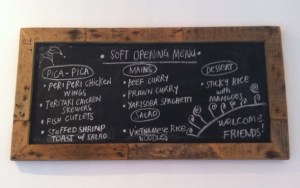 SOFT OPENING MENU
PICA-PICA
• PERI PERI CHICKEN
WINGS
• TERIYAKI CHICKEN
SKEWERS
• FISH CUTLETS
• STUFFED SHRIMP
TOAST w/ SALAD
MAINS
• BEEF CURRY
• PRAWN CURRY
• YAKISOBA SPAGHETTI
SALAD
• VIETNAMESE RICE
NOODLES
DESSERT
• STICKY RICE
WITH
MANGOES
WELCOME
FRIENDS!